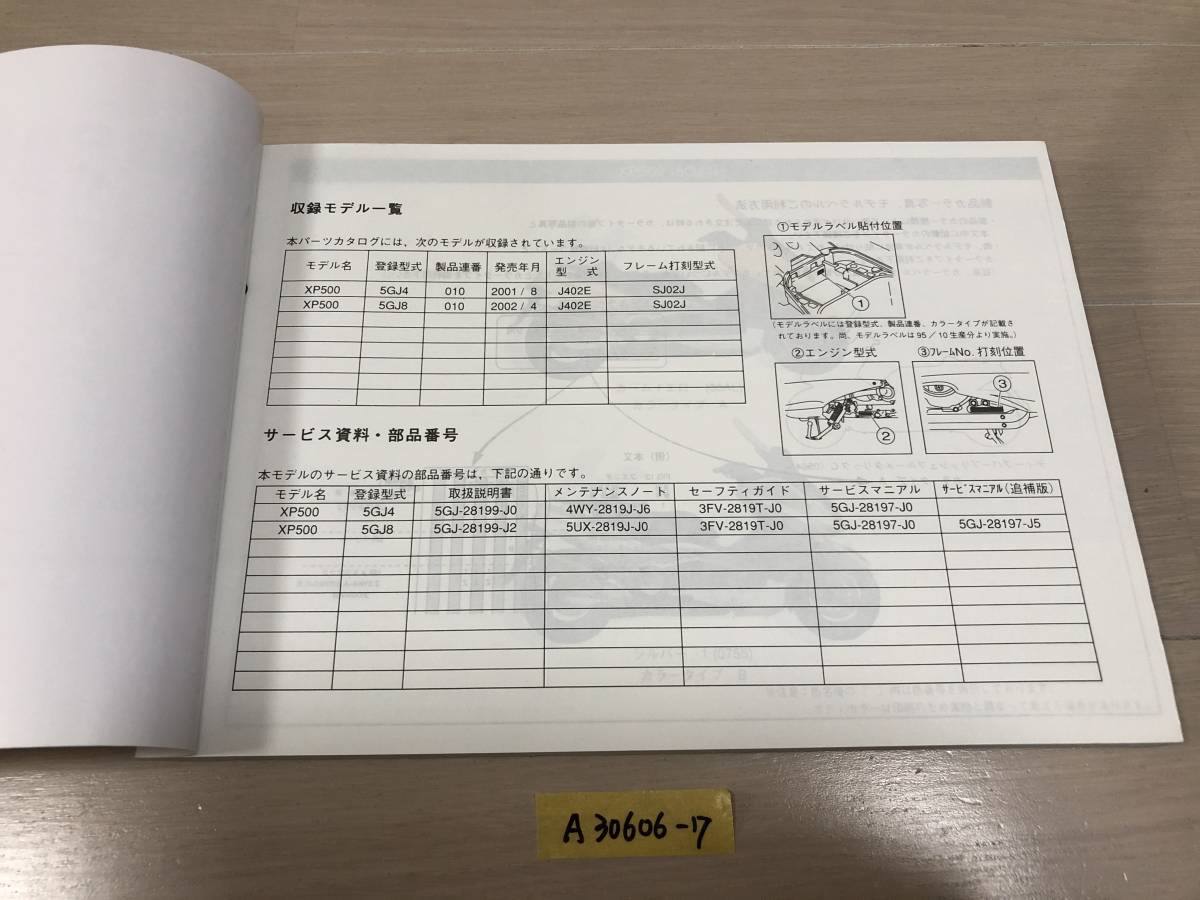 収録モデル一覧
本パーツカタログには、次のモデルが収録されています。
モデル名 登録型式 製品連番 発売年月 エンジン型式 フレーム打刻型式
XP500 5GJ4 010 2001/8 J402E SJ02J
XP500 5GJ8 010 2002/4 J402E SJ02J
①モデルラベル貼付位置
①
(モデルラベルには登録型式、製品連番、カラータイプが記載さ
れております。尚、モデルラベルは95/10生産分より実施。)
②エンジン型式 ③フレームNo.打刻位置
② ③
サービス資料・部品番号
本モデルのサービス資料の部品番号は、下記の通りです。
モデル名 登録型式 取扱説明書 メンテナンスノート セーフティガイド サービスマニアル サービスマニアル(追補版)
XP500 5GJ4 5GJ-28199-J0 4WY-2819J-J6 3FV-2819T-J0 5GJ-28197-J0
XP500 5GJ8 5GJ-28199-J2 5UX-2819J-J0 3FV-2819T-J0 5GJ-28197-J0 5GJ-28197-J5
A30606-17